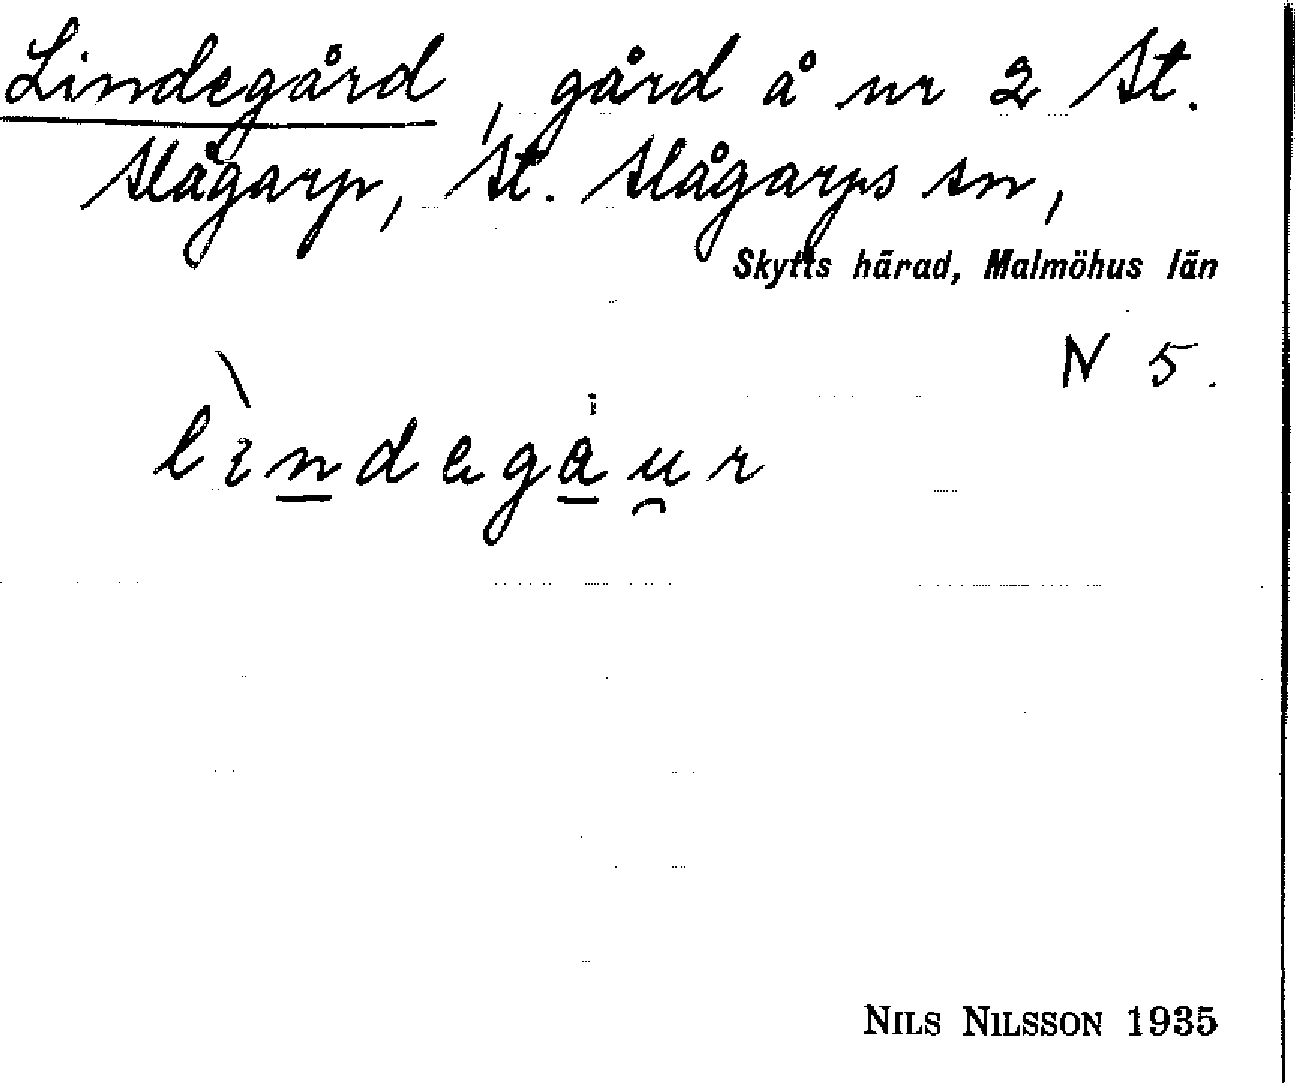 Lindegård, gård å nr 2 St.
Slågarp, St. Slågarps sn,
Skytts härad, Malmöhus län
N 5.
lìndegåur
NILS NILSSON 1935